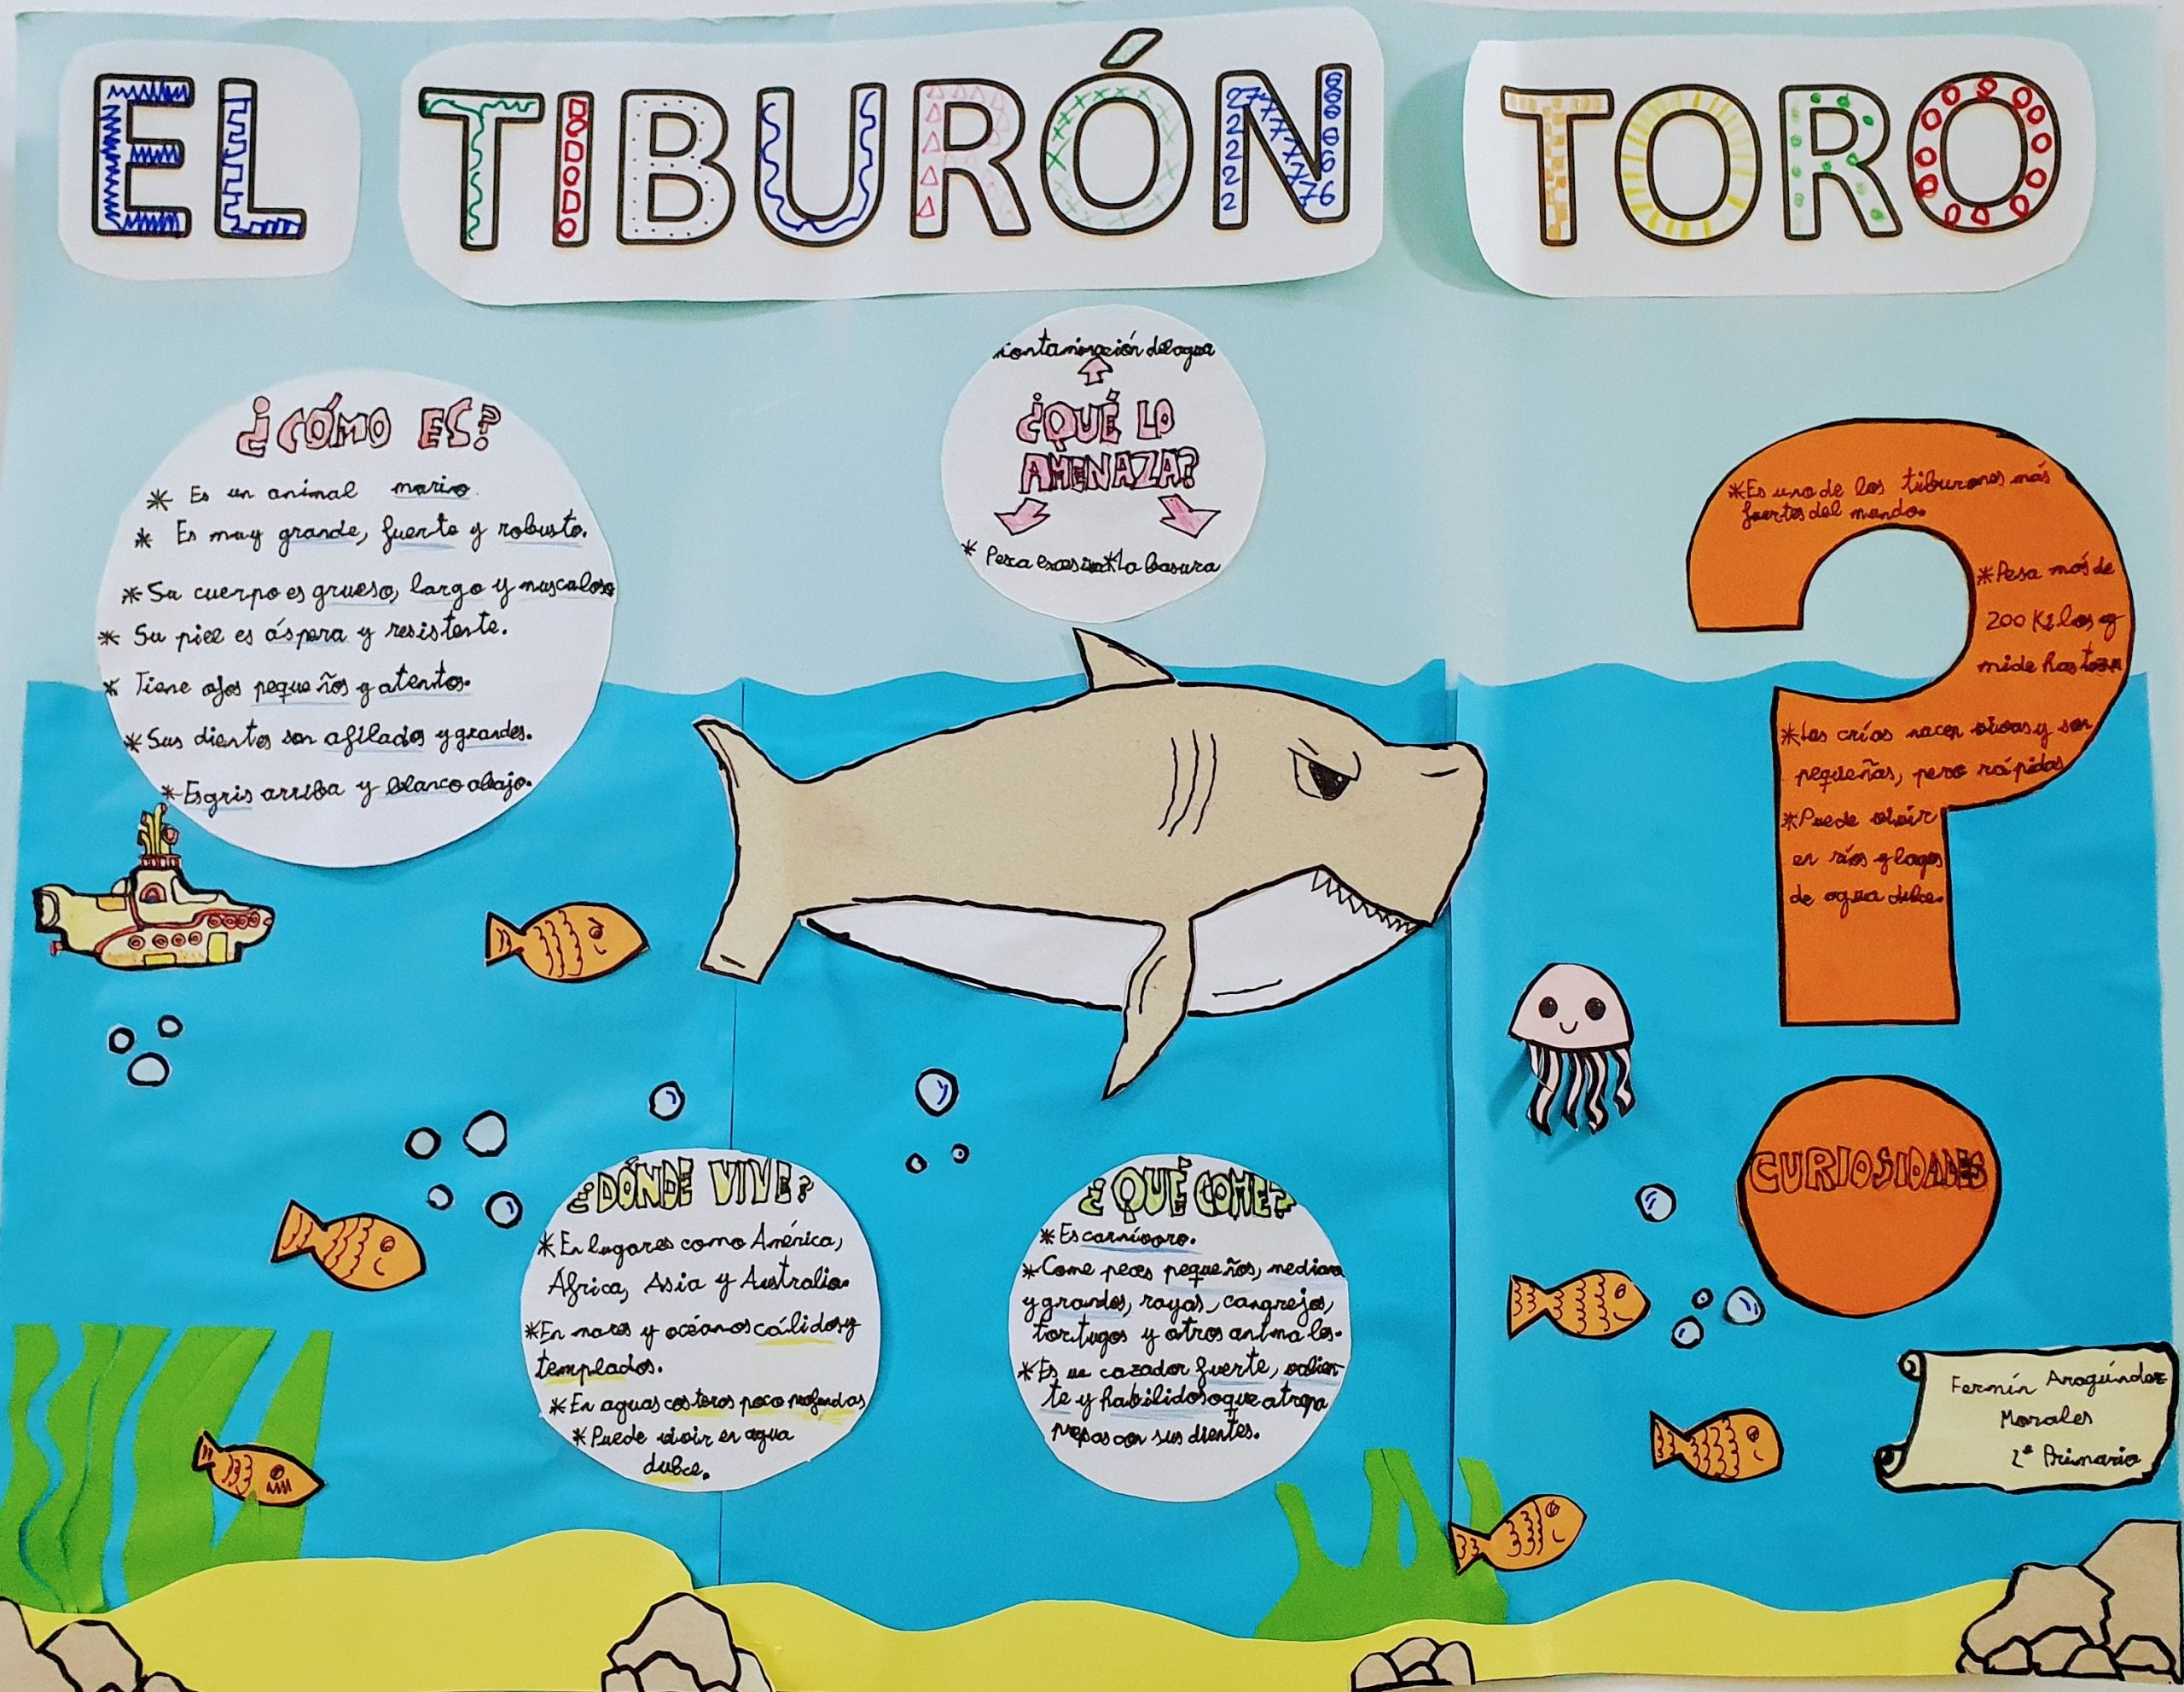 EL TIBURÓN TORO
¿CÓMO ES?
* Es un animal marino.
* Es muy grande, fuerte y robusto.
* Su cuerpo es grueso, largo y musculoso
* Su piel es áspera y resistente.
* Tiene ojos pequeños y atentos.
* Sus dientes son afilados y grandes.
* Es gris arriba y blanco abajo.
contaminación del agua
¿QUÉ LO
AMENAZA?
* Pesca excesiva * La basura
* Es uno de los tiburones más
fuertes del mundo.
* Pesa más de
200 Kilos y
mide hasta
* Las crías nacen vivas y son
pequeñas, pero rápidas
* Puede vivir
en ríos y lagos
de agua dulce.
CURIOSIDADES
¿DÓNDE VIVE?
* En lugares como América,
África, Asia y Australia.
* En mares y océanos cálidos y
templados.
* En aguas costeras poco profundas
* Puede vivir en agua
dulce.
¿QUÉ COME?
* Es carnívoro.
* Come peces pequeños, mediano
y grandes, rayas, cangrejos,
tortugas y otros animales.
* Es un cazador fuerte, valien-
te y habilidoso que atrapa
presas con sus dientes.
Fermín Aragúndez
Morales
2º Primaria